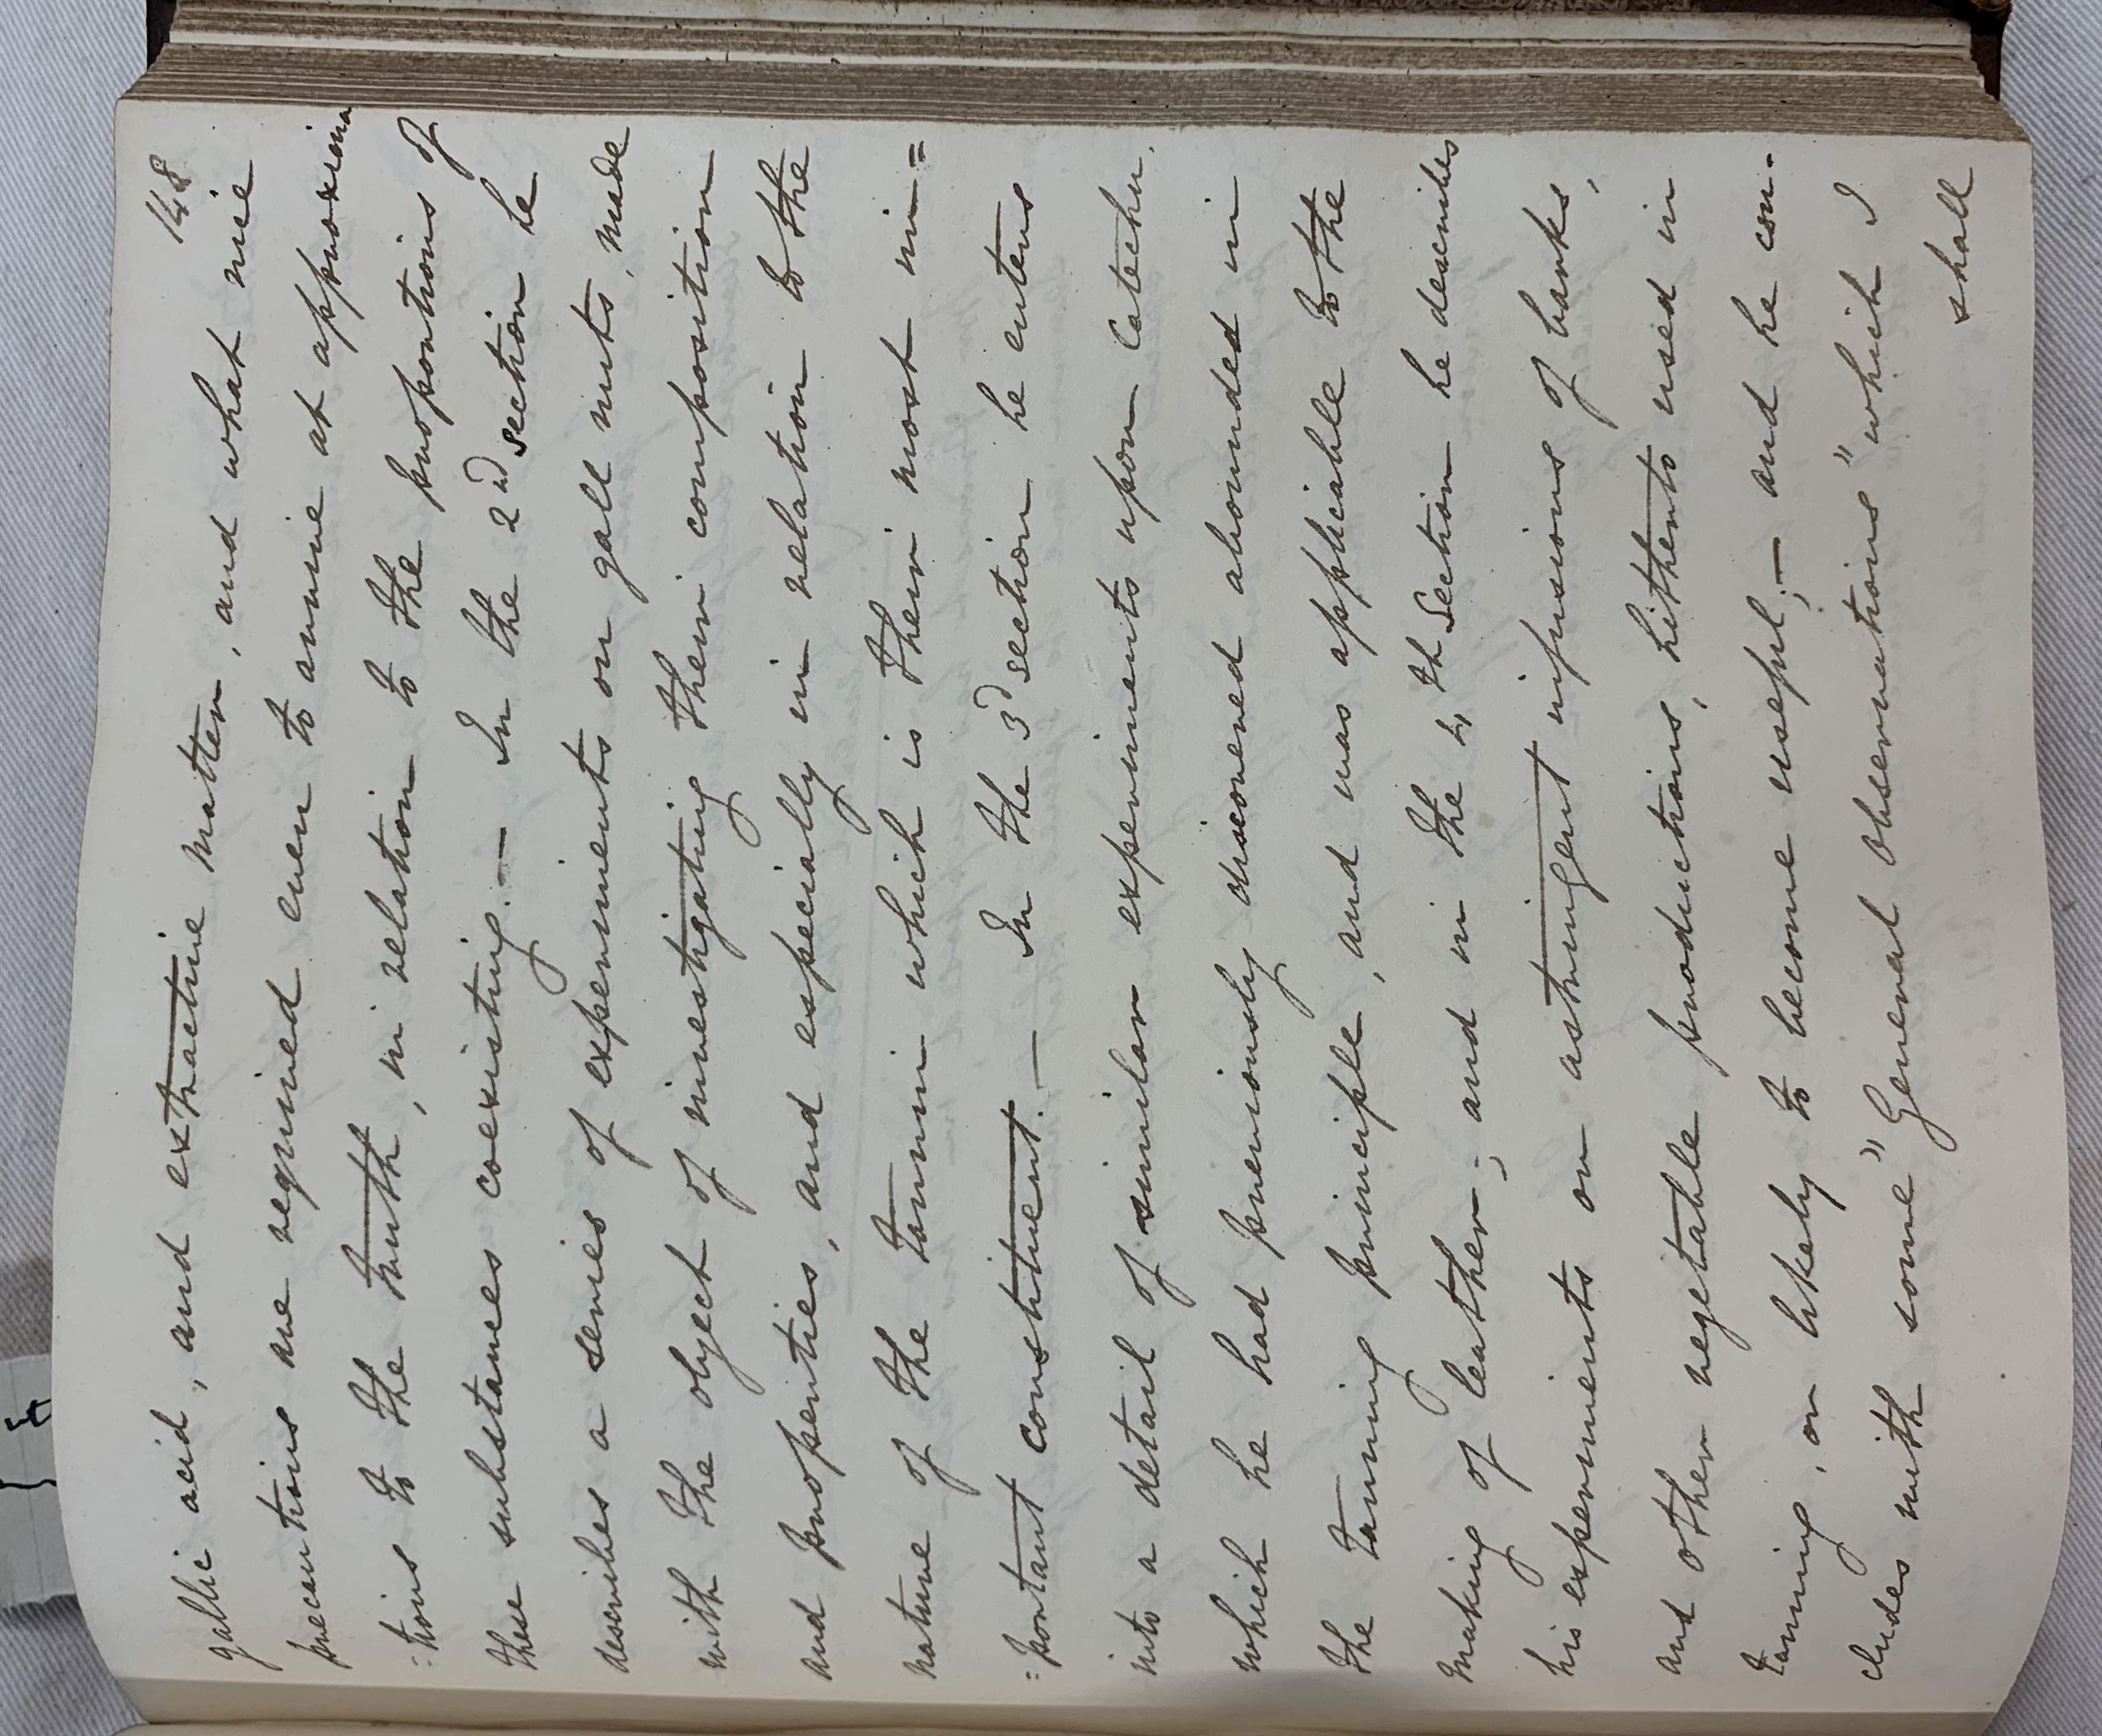 148
gallic acid, and extractive matter, and what nice
precautions are required even to arrive at approxima
:tions to the truth, in relation to the proportions of
these substances coexisting. — In the 2d section he
describes a series of experiments on gall nuts, made
with the object of investigating their composition
and properties, and especially in relation to the
nature of the tannin which is their most im=
:portant constituent. — In the 3d section he enters
into a detail of similar experiments upon Catechu,
which he had previously discovered abounded in
the tanning principle, and was applicable to the
making of leather; and in the 4th Section he describes
his experiments on astringent infusions of barks,
and other vegetable productions, hitherto used in
tanning, or likely to become useful; — and he con-
cludes with some "General Observations" which I
shall